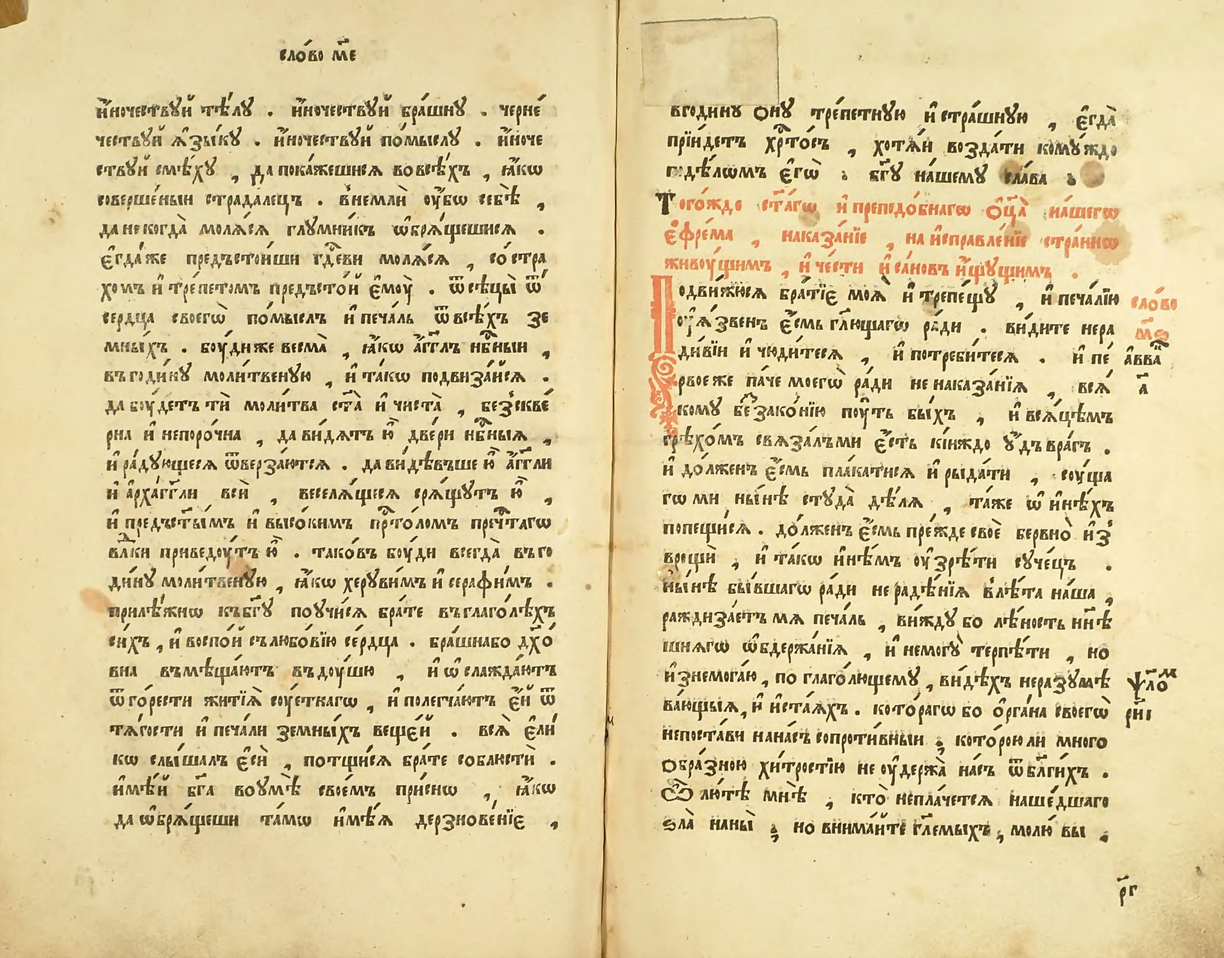 сло́во м҃е
и҆́ночествꙋй тѣ́лꙋ . и҆́ночествꙋй бра́шнꙋ . черне́
чествꙋй ѧ҆зы́кꙋ . и҆́ночествꙋй по́мыслꙋ . и҆́ноче
ствꙋй смѣ́хꙋ , да покаже́шисѧ во всѣ́хъ , ꙗ҆́кѡ
соверше́ныи страда́лецъ . вне́мли ᲂу҆́бѡ себѣ̀ ,
да некогда̀ молѧ́сѧ глꙋ́мникъ ѡ҆брѧ́щешисѧ .
є҆гда́ же предъстои́ши гдⷭ҇еви молѧ́сѧ , со стра
хомъ и҆ тре́петомъ предъсто́й є҆моꙋ̀ . ѿсѣцы̀ ѿ
се́рдца своегѡ̀ по́мыслъ и҆ печа́ль ѿ всѣ́хъ зе
мны́хъ . боу́ди же весма̀ , ꙗ҆́кѡ а҆́гг҃лъ нбⷭ҇ныи ,
въ годи́нꙋ моли́твенꙋю , и҆ та́кѡ подвиза́йсѧ .
да боу́детъ тѝ моли́тва ст҃а̀ и҆ чиста̀ , безскве́
рна и҆ непоро́чна , да ви́дѧтъ ю҆̀ две́ри нбⷭ҇ныѧ ,
и҆ ра́дꙋющесѧ ѿверза́ютсѧ . да ви́дѣвъше ю҆̀ а҆́гг҃ли
и҆ а҆рха́гг҃ли всѝ , веселѧ́щесѧ срѧ́щꙋтъ ю҆̀ ,
и҆ предъст҃ы́мъ и҆ высо́кимъ прⷭ҇то́ломъ прⷱ҇тагѡ
влⷣки приведоу́тъ ю҆̀ . тако́въ боу́ди всегда̀ въ го
ди́нꙋ моли́твенꙋю , ꙗ҆́кѡ херꙋви́мъ и҆ серафи́мъ .
прилѣ́жнѡ къ бг҃ꙋ поꙋчи́сѧ бра́те въ глаго́лѣхъ
си́хъ , и҆ воспо́й съ любо́вїю се́рдца . бра́шна бо дх҃о́
вна въмѣща́ютъ въ до́ушю , и҆ ѡ҆слажда́ютъ
ѿ го́рести житїѧ̀ соу́еткагѡ , и҆ полегча́ютъ є҆́й ѿ
тѧ́гости и҆ печа́ли земны́хъ веще́й . всѧ̀ є҆ли́
кѡ слы́шалъ є҆сѝ , потщи́сѧ бра́те соблюстѝ .
и҆мѣ́й бг҃а воумѣ̀ своѐмъ при́снѡ , ꙗ҆́кѡ
да ѡ҆брѧ́щеши та́мѡ и҆мѣ́ѧ дерзнове́нїе ,
в годи́нꙋ ѻ҆́нꙋ тре́петнꙋю и҆ стра́шнꙋю , є҆гда̀
прїи́детъ хрⷭ҇то́съ , хотѧ́й возда́ти комꙋ́ждо
по дѣлѡ́мъ є҆гѡ̀ . бг҃ꙋ на́шемꙋ сла́ва .
Того́жде ст҃а́гѡ и҆ преподо́бнагѡ ѻ҆ц҃а̀ на́шегѡ
є҆фре́ма , наказа́нїе , на и҆справле́нїе стра́ннѡ
живоу́щимъ , и҆ че́сти и҆ сано́въ и҆́щꙋщимъ .
Подви́жюсѧ бра́тїе моѧ̀ и҆ трепещꙋ̀ , и҆ печа́лїю
оу҆ѧ́звенъ є҆́смь гл҃ющагѡ ра́ди . ви́дите нера
ди́вїи и҆ чюди́тесѧ , и҆ потреби́тесѧ . и҆ пе́
рвое же па́че моегѡ̀ ра́ди ненаказа́нїѧ , всѧ́
комꙋ беззако́нїю поу́ть бы́хъ , и҆ всѧ́цѣмъ
грѣхо́мъ свѧза́лъ ми є҆́сть кіиждо ᲂу҆́дъ вра́гъ .
и҆ до́лженъ є҆́смь пла́катисѧ и҆ рыда́ти , соу́ща
гѡ ми ны́нѣ стꙋда̀ дѣ́лѧ , та́же ѡ҆ и҆нѣ́хъ
попещи́сѧ . до́лженъ є҆́смь пре́жде своѐ бервно̀ и҆з̾
врещѝ , и҆ та́кѡ и҆нѣ́мъ ᲂу҆зрѣ́ти сꙋче́цъ .
ны́нѣ бы́вшагѡ ра́ди нераде́нїѧ в лѣ́та на́ша ,
раждиза́етъ мѧ печа́ль , ви́ждꙋ бо лѣ́ность ны́нѣ
шнѧгѡ ѡ҆бдержа́нїѧ , и҆ немогꙋ̀ терпѣ́ти , но
и҆знемога́ю , по глаго́лющемꙋ , ви́дѣхъ неразꙋмѣ
ва́ющыѧ , и҆ и҆ста́ѧхъ . кото́рагѡ бо ѻ҆рга́на своегѡ̀
непоста́ви на на́съ сопроти́вныи ; кото́рою ли много
ѻ҆бра́зною хи́тростїю не ᲂу҆держа̀ на́съ ѿ бл҃ги́хъ .
Ѽ лю́тѣ мнѣ̀ , кто̀ непла́четсѧ наше́дшаго
ѕла̀ на ны̀ ; но внима́йте гл҃емыхъ , молю́ вы ,
сло́во
м҃ѕ
а҆вва̀
а҃
ѱало́м
рн҃і
р҃г